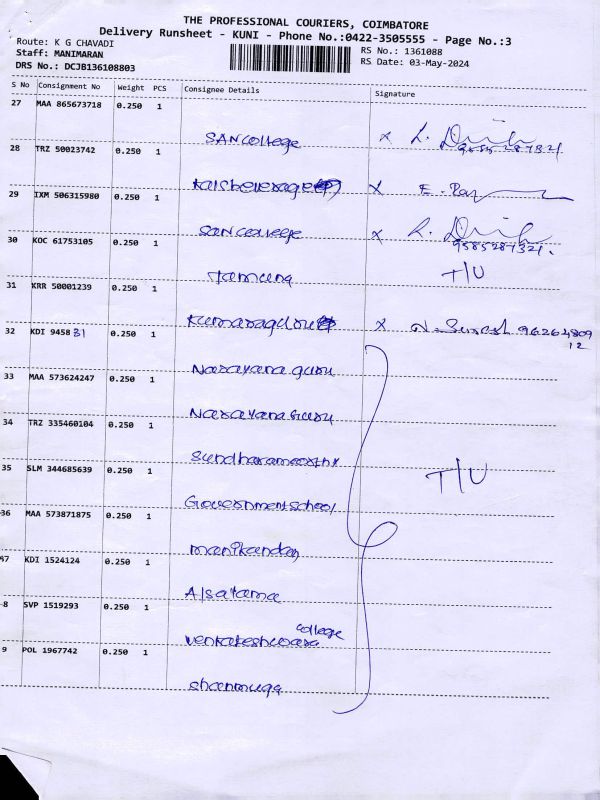 THE PROFESSIONAL COURIERS, COIMBATORE
Delivery Runsheet - KUNI - Phone No.:0422-3505555 - Page No.:3
Route: K G CHAVADI
Staff: MANIMARAN
DRS No.: DCJB136108803
RS No.: 1361088
RS Date: 03-May-2024
S No Consignment No Weight PCS Consignee Details Signature
27 MAA 865673718 0.250 1
SANCollege x
9585287321
28 TRZ 50023742 0.250 1
Kalsbeverage x E. Ray
29 IXM 506315980 0.250 1
SANCollege x
9585287321.
30 KOC 61753105 0.250 1
Tamiling T/U
31 KRR 50001239 0.250 1
Kumaraguru x N. Suresh 96264809
12
32 KDI 945831 0.250 1
Narayana guru
33 MAA 573624247 0.250 1
Narayana Guru
34 TRZ 335460104 0.250 1
Sundharamoorthy
T/U
35 SLM 344685639 0.250 1
Government school
36 MAA 573871875 0.250 1
manikandan
37 KDI 1524124 0.250 1
Alsatama
8 SVP 1519293 0.250 1
college
Venkateshwara
9 POL 1967742 0.250 1
Shanmuga